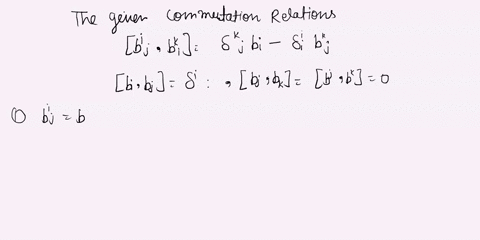 The given commutation Relations
[b^i_j , b^k_i] = δ^k_j b^i_i - δ^i_i b^k_j
[b^i, b_j] = δ^i : , [b_j, b_k] = [b^j, b^k] = 0
① b^i_j = b